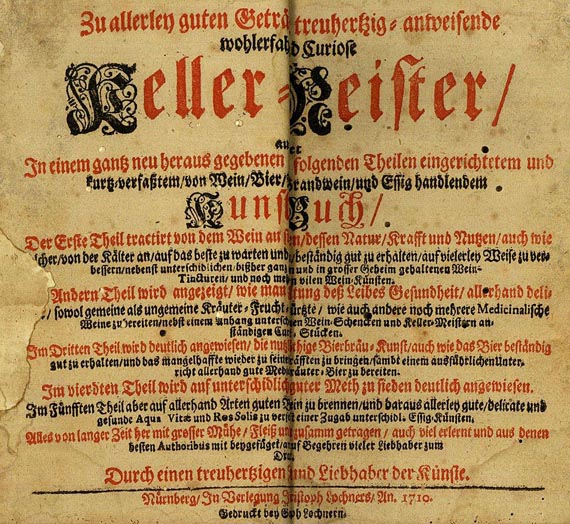 Zu allerley guten Geträ treuhertzig-anweisende
wohlerfah d Curiose
Keller-Meister/
In einem gantz neu heraus gegebenen folgenden Theilen eingerichtetem und
kurtz-verfaßtem/von Wein/Bier/Brandwein/und Essig handlendem
Kunst Buch/
Der Erste Theil tractirt von dem Wein an /dessen Natur/Krafft und Nutzen/auch wie
/von der Kälter an/auf das beste zu warten und beständig gut zu erhalten/auf vielerley Weise zu ver-
bessern/nebenst unterschidlichen/bißher gantz und in grosser Geheim gehaltenen Wein-
Tincturen/und noch mehr vilen Wein-Künsten.
Andern Theil wird angezeigt/wie man deß Leibes Gesundheit/allerhand deli-
/sowol gemeine als ungemeine Kräuter-Frucht- /wie auch andere noch mehrere Medicinalische
Weine zu bereiten/nebst einem Anhang unterschi Wein-Schencken und Keller-Meistern an-
ständigen Stücken.
Im Dritten Theil wird deutlich angewiesen/die Bierbräu-Kunst/auch wie das Bier beständig
gut zu erhalten/und das mangelhaffte wieder zu zu bringen/sambt einem ausführlichen Unter-
richt allerhand gute -Bier zu bereiten.
Im vierdten Theil wird auf unterschidlich guter Meth zu sieden deutlich angewiesen.
Im Fünfften Theil aber auf allerhand Arten guten zu brennen/und daraus allerley gute/delicate und
gesunde Aqua Vitæ und Ros Solis zu einer Zugab unterschidl. Essig-Künsten.
Alles von langer Zeit her mit grosser Mühe/Fleiß und zusamm getragen/auch viel erlernt und aus denen
besten Authoribus mit beygefüget/auf Begehren vieler Liebhaber zum
Dru
Durch einen treuhertzigen und Liebhaber der Künste.
Nürnberg/In Verlegung Lochners/An. 1710.
Gedruckt bey Lochnern.